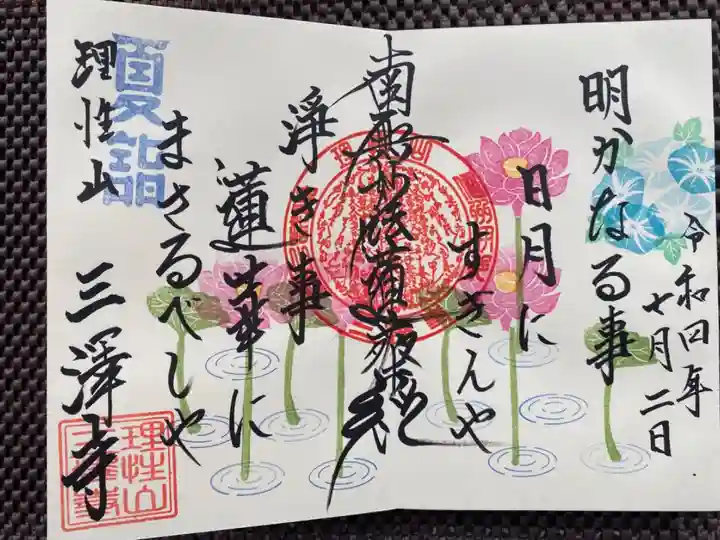 令和四年
七月二日
明かなる事
日月に
すぎんや
南無妙法蓮華経
浄き事
蓮華に
まさるべしや
夏詣
理性山
三澤寺
理性山